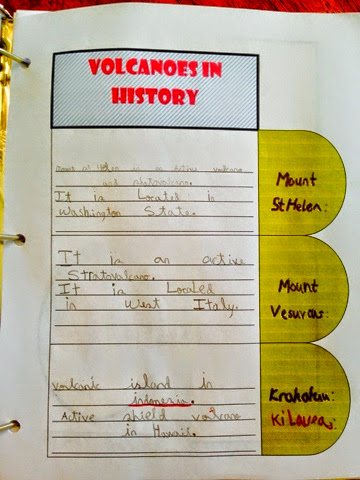 VOLCANOES IN
HISTORY
Mount St Helen is an Active volcano
and stratovolcano.
It is Located in
Washington State.
Mount
St Helen:
It is an active
Stratovolcano.
It is Located
in West Italy.
Mount
Vesuvans:
volcanic island in
indonesia.
Active shield volcano
in Hawaii.
Krakatau:
Kilauea: